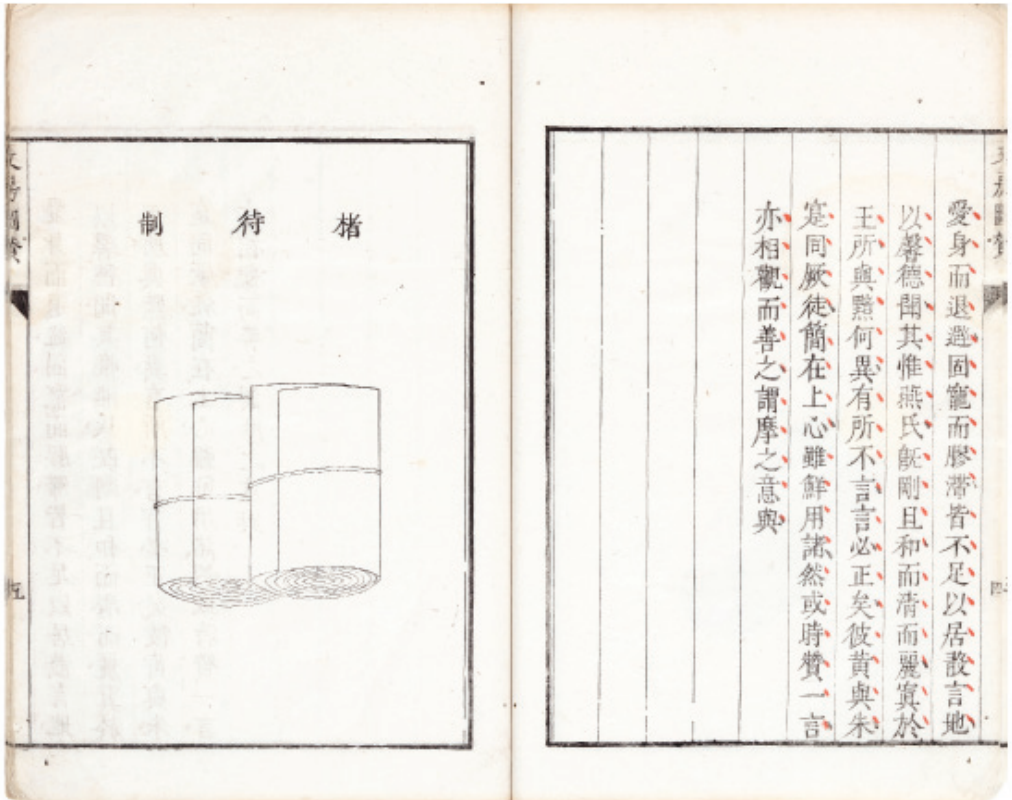 文房圖贊
四
愛身而退避固寵而膠滯皆不足以居敢言地
以馨德聞其惟燕氏既剛且和而清而麗寘於
王所與黯何異有所不言言必正矣彼黃與朱
寔同厥徒簡在上心雖鮮用諸然或時贊一言
亦相觀而善之謂摩之意與
楮待制
文房圖贊
五